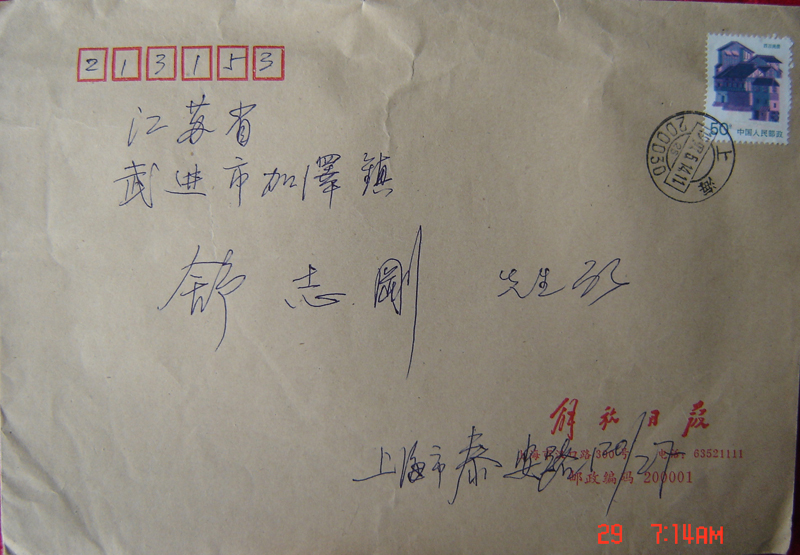 213153
江苏省
武进市加澤镇
舒志剛 先生 收
50 中国人民邮政
上海
200030
解放日报
上海市汉口路300号 电话: 63521111
上海市泰安路120/27
邮政编码 200001
29 7:14AM